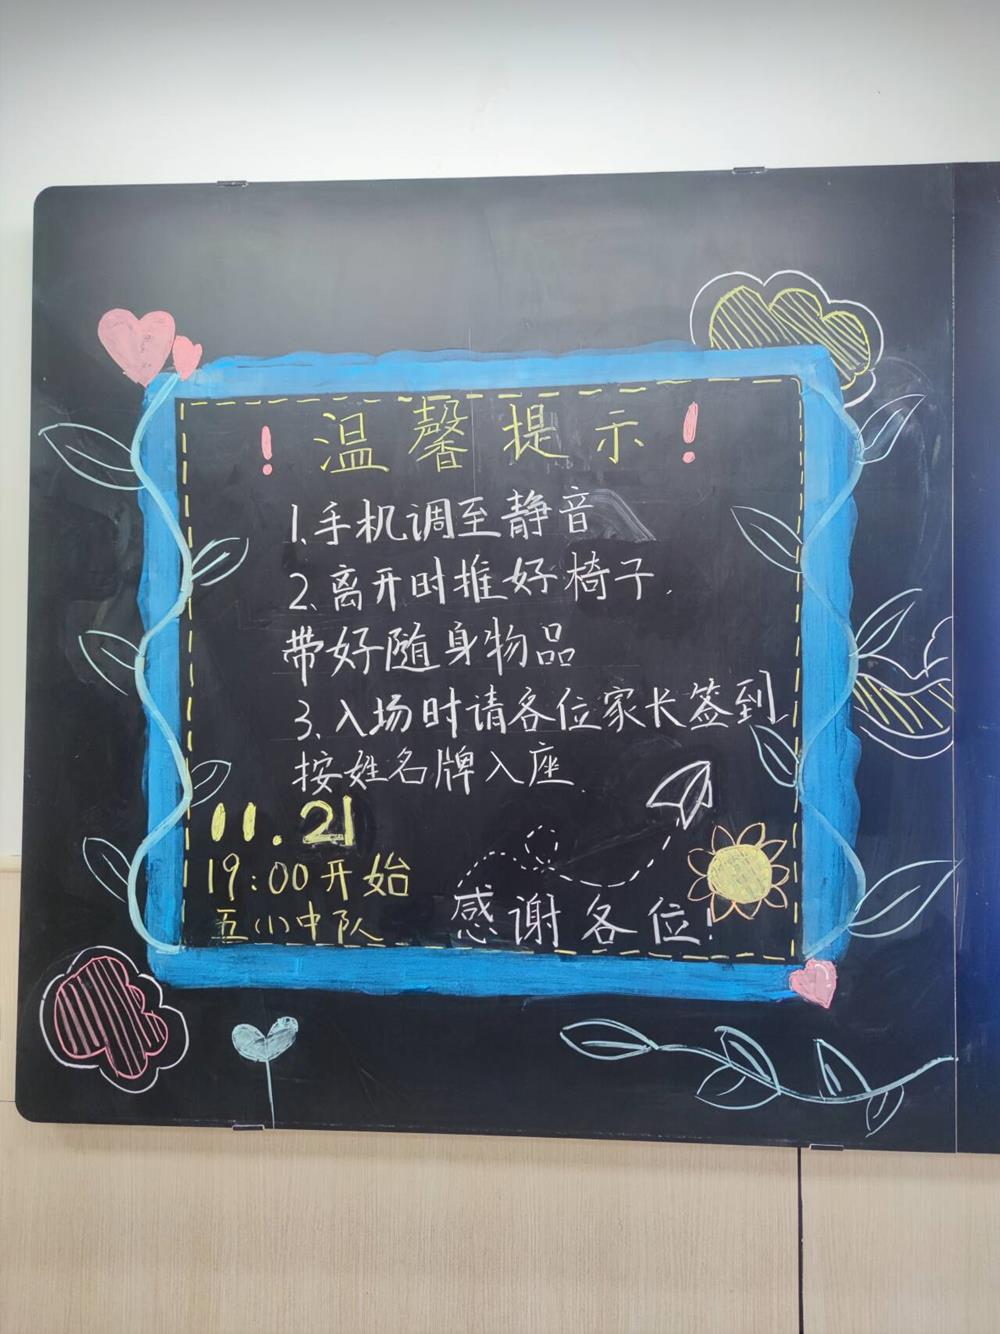 ！温馨提示！
1.手机调至静音
2.离开时推好椅子.
带好随身物品
3.入场时请各位家长签到.
按姓名牌入座.
11.21
19:00开始
五(1)中队
感谢各位!